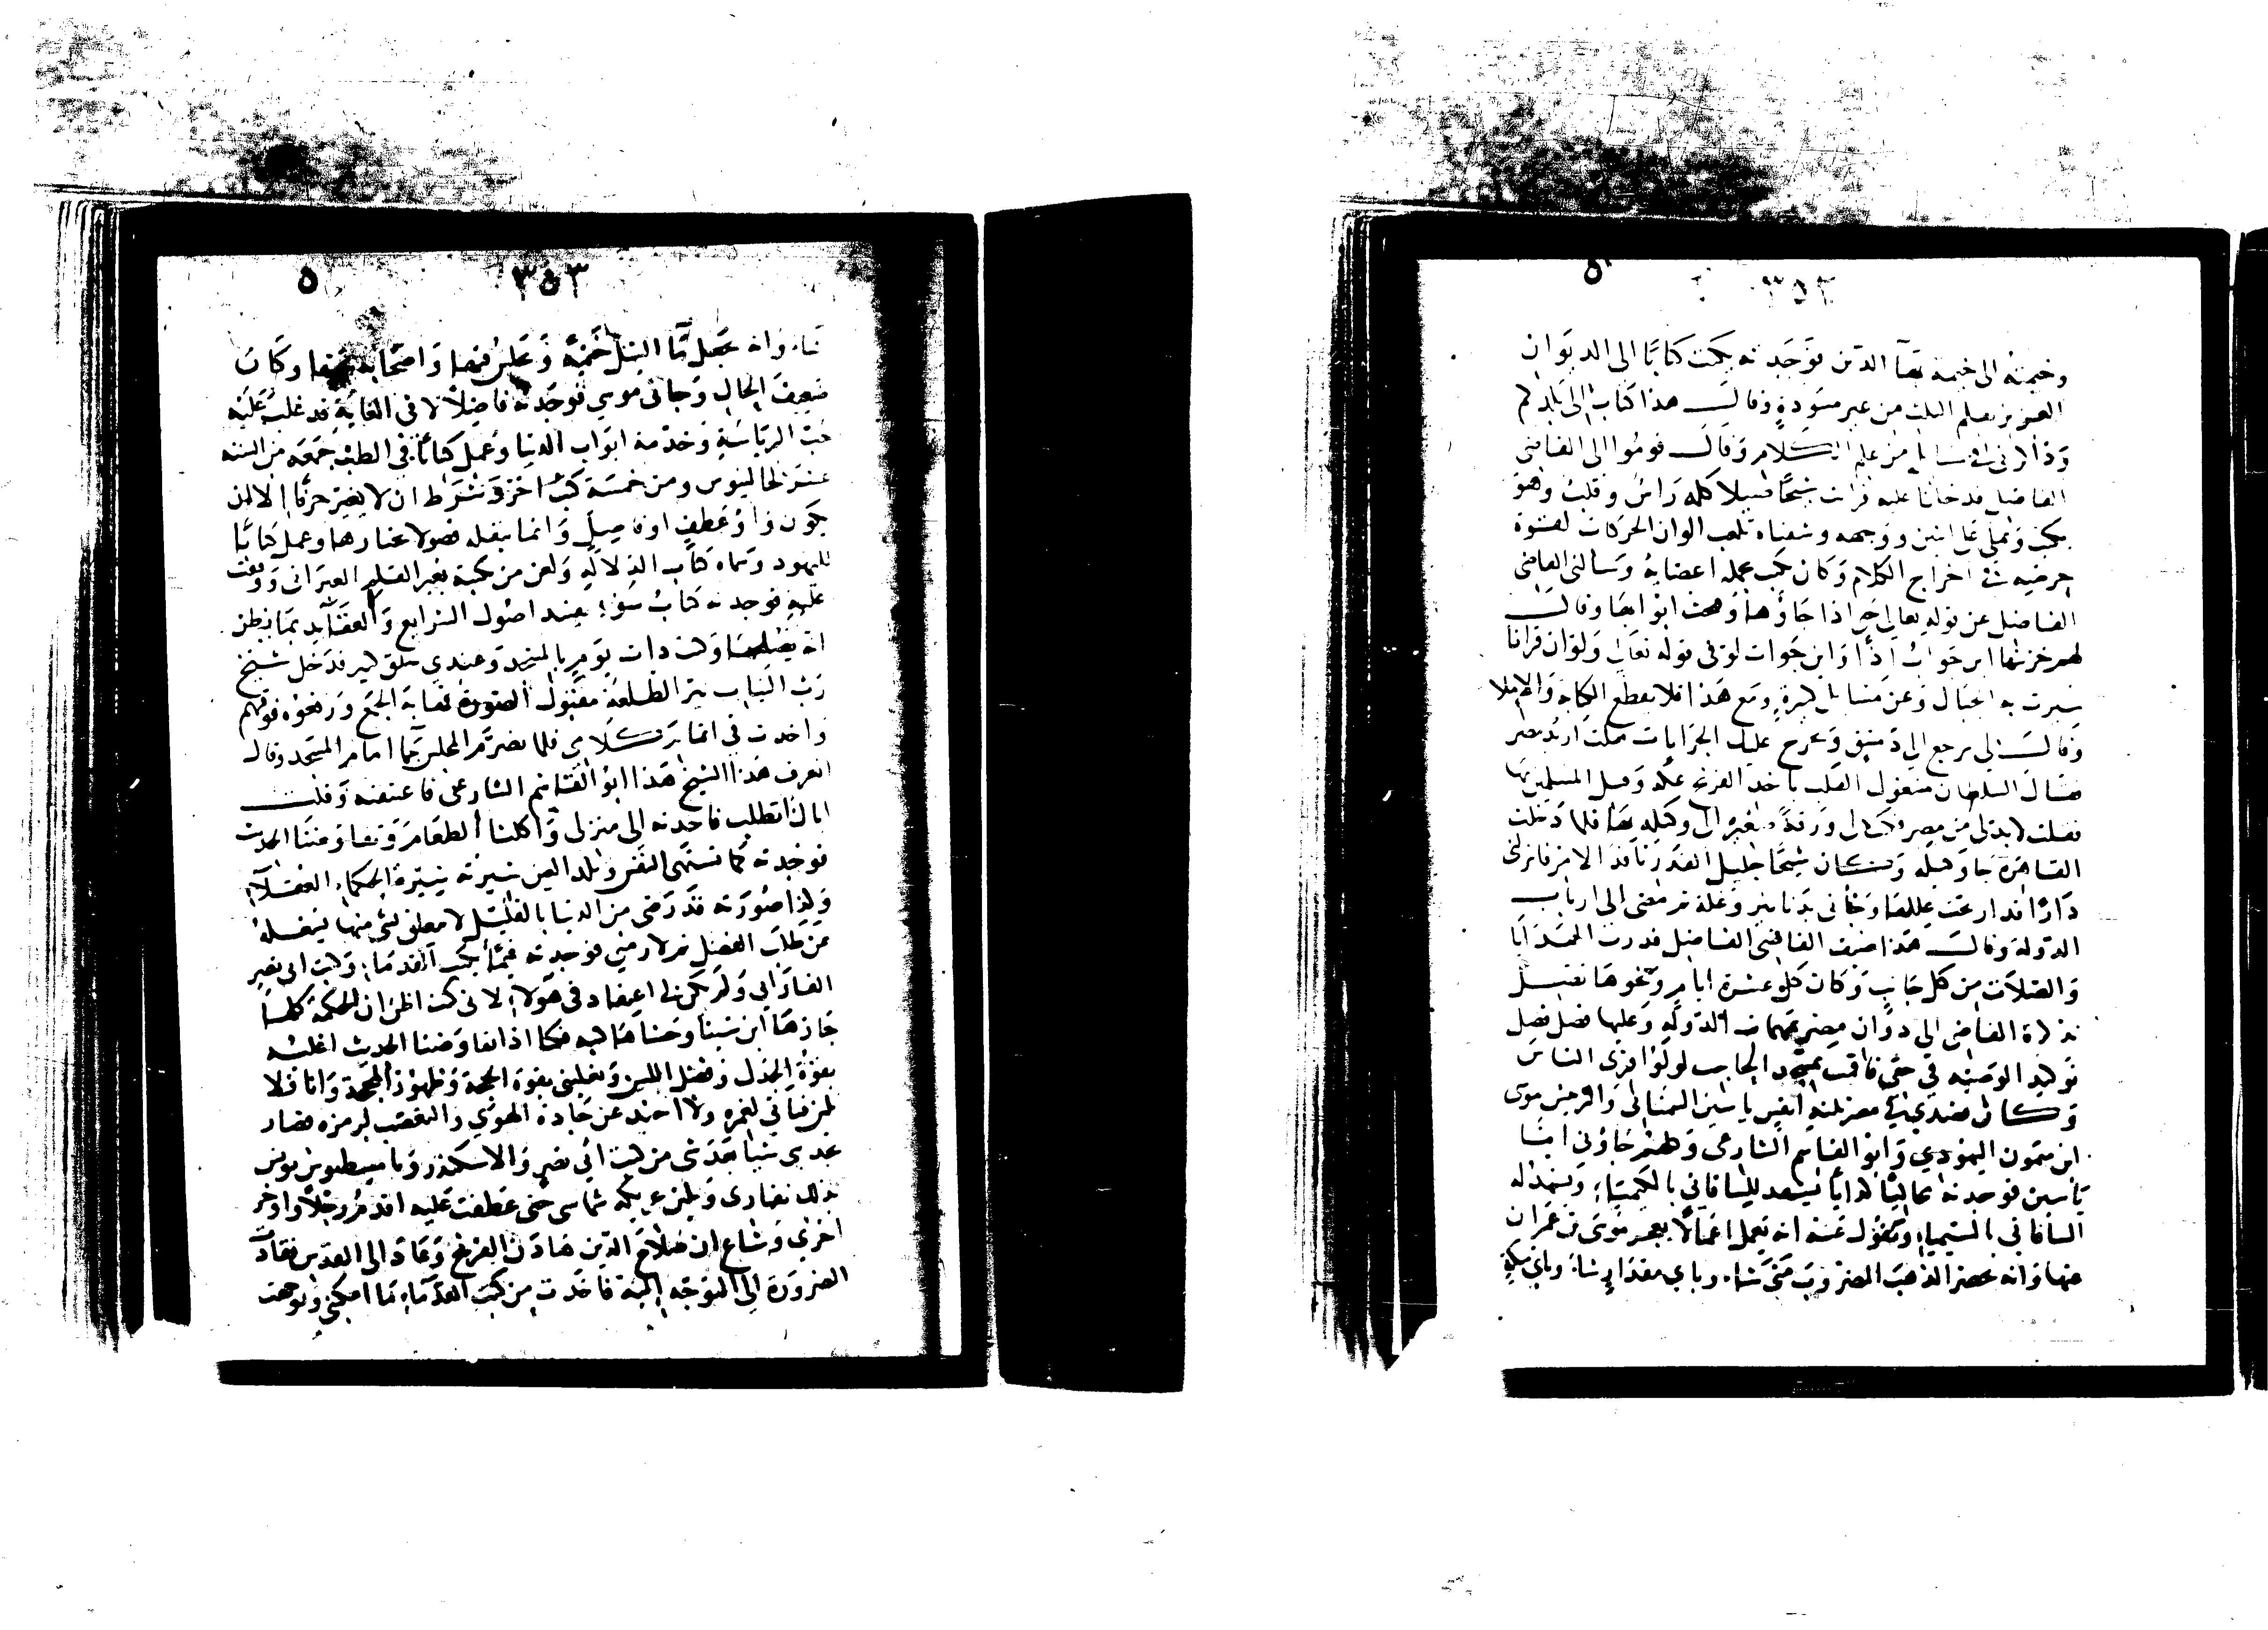 ٣٥٢
وخيمته الى خيمة بهآ الدين فوجدته يكتب كتابًا الى الديوان
العزيز بقلم الثلث من غير مسودة وقال هذا كتاب الى بلدكم
وذاكرنى فى مسايل من علم الكلام وقال قوموا الى القاضى
الفاضل فدخلنا عليه فرايت شيخًا ضييلا كله راس وقلب وهو
يكتب ويملى على اثنين ووجهه وشفتاه تلعب الوان الحركات لقوة
حرصه فى اخراج الكلام وكان يكتب بجملة اعضايه وسالنى القاضى
الفاضل عن قوله تعالى حتى اذا جاؤها وفتحت ابوابها وقال
لهم خزنتها اين جواب اذا واين جواب لو فى قوله تعالى ولو ان قرانا
سيرت به الجبال وعن مسايل كثيرة ومع هذا فلا يقطع الكتابة والاملا
وقال لى ترجع الى دمشق وتجرى عليك الجرايات فقلت اريد مصر
فقال السلطان مشغول القلب باخذ الفرنج عكه وقتل المسلمين بها
فقلت لا بد لى من مصر فكتب لى ورقة صغيرة الى وكيله بها فلما دخلت
القاهرة جاء وكيله وكان شيخًا جليل القدر نافذ الامر فانزلنى
دارًا قد ازيحت عللها وجاءنى بدنانير وغلة ثم مضى الى ارباب
الدولة وقال هذا ضيف القاضى الفاضل فدرت الهدايا
والصلات من كل جانب وكان كل عشرة ايام ونحوها تصل
تذكرة القاضى الى ديوان مصر بمهمات الدولة وعليها فصل فصل
توكيد الوصية فى حقى فاقمت بمسجد الحاجب لولؤ اقرى الناس
وكان قصدى فى مصر ثلثة انفس ياسين السيميائى والرييس موسى
ابن ميمون اليهودى وابو القاسم الشارعى وكلهم جاؤنى اما
ياسين فوجدته محاليًا كذابًا يشهد للشاقانى بالكيمياء ويشهد له
الشاقانى بالسيمياء ويقول عنه انه يعمل اعمالًا يعجز موسى بن عمران
عنها وانه يحضر الذهب المضروب متى شاء وباى مقدار شاء وباى سكة
٣٥٣
شاء وانه يجعل ماء النيل خيمة ويجلس فيها واصحابه تحتها وكان
ضعيف الحال وجاءنى موسى فوجدته فاضلاً لا فى الغاية قد غلب عليه
حب الرياسة وخدمة ارباب الدنيا وعمل كتابًا فى الطب جمعه من الستة
عشر لجالينوس ومن خمسة كتب اخرى وشرط ان لا يغير حرفًا الا ان
يكون واو عطف او فا وصل وانما ينقل فصولا يختارها وعمل كتابًا
لليهود وسماه كتاب الدلالة ولعن من يكتبه بغير القلم العبرانى ووقفت
عليه فوجدته كتاب سوء يفسد اصول الشرايع والعقايد بما يظن
انه يصلحها وكنت ذات يوم بالمسجد وعندى خلق كثير فدخل شيخ
رث الثياب نير الطلعة مقبول الصورة فهابه الجمع ورفعوه فوقهم
واخذت فى اتمام كلامى فلما تصرم المجلس جاءنى امام المسجد وقال
اتعرف هذا الشيخ هذا ابو القاسم الشارعى فاعتنقته وقلت
اياك اطلب فاخذته الى منزلى واكلنا الطعام وتفاوضنا الحديث
فوجدته كما تشتهى النفس وتلذ العين سيرته سيرة الحكماء العقلآء
وكذا صورته قد رضى من الدنيا بالقليل لا يعلق بشى منها يشغله
عن طلب الفضل ثم لازمنى فوجدته قيمًا بكتب القدماء وكتب ابى نصر
الفارابى ولم يكن لى اعتقاد فى هؤلاء لانى كنت اظن ان الحكمة كلها
حازها ابن سينا وحشاها كتبه فكنا اذا تفاوضنا الحديث اغلبه
بقوة الجدل وفضل اللسن ويغلبنى بقوة الحجة وظهور المحجة وانا فلا
تلين قناتى لغمزه ولا احيد عن جادة الهوى والتعصب لرمزه فصار
يحضرنى شيًا بعد شى من كتب ابى نصر والاسكندر وثامسطيوس يونس
بذلك نفارى ويلين عريكة شماسى حتى عطفت عليه اقدم رجلاً واوخر
اخرى وشاع ان صلاح الدين هادن الفرنج وعاد الى القدس فقادت
الضرورة الى التوجه اليه فاخذت من كتب القدماء ما امكننى وتوجهت